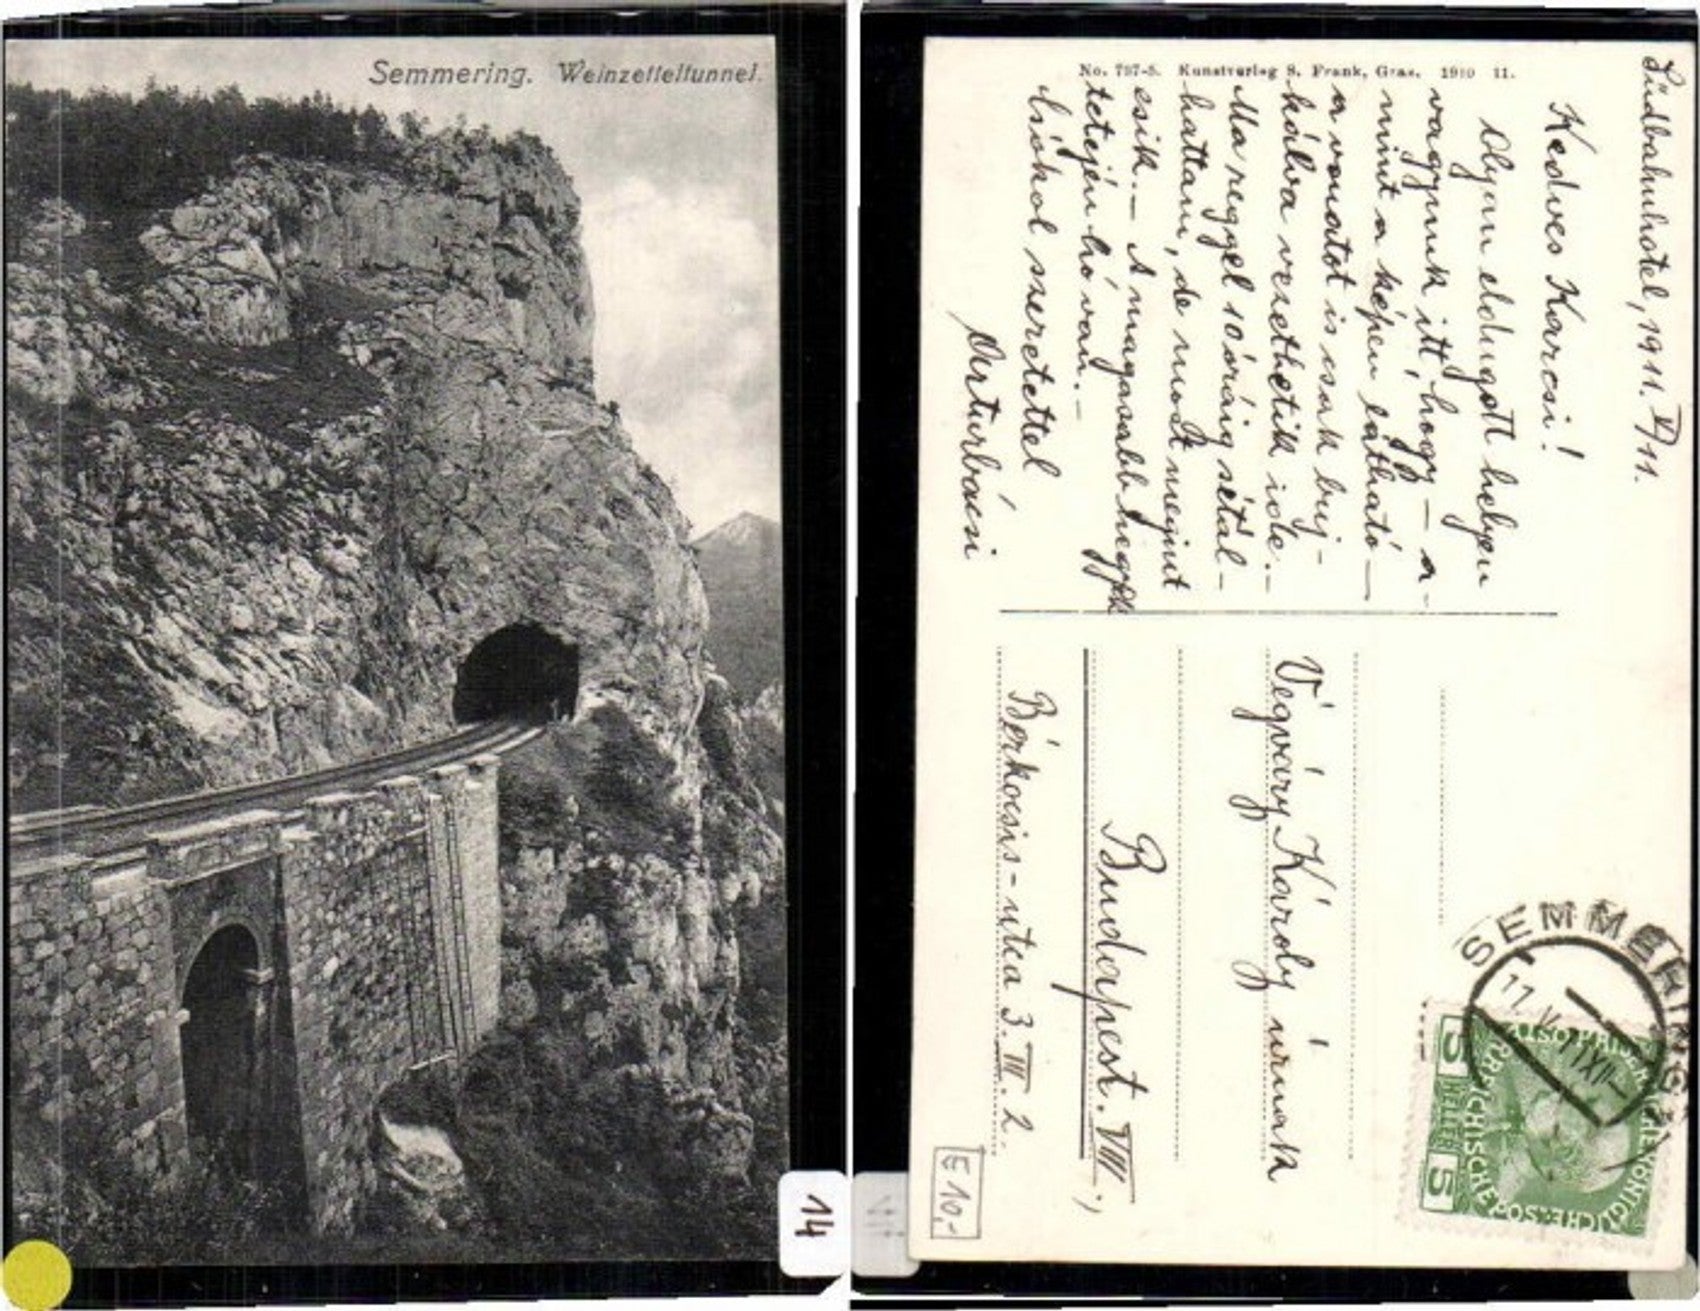 Semmering. Weinzetteltunnel.
14
No. 797-5. Kunstverlag S. Frank, Graz. 1910 11.
Südbahnhotel, 1911. V/11.
Kedves Karcsi!
Olyan eldugott helyen
vagyunk itt, hogy – a-
mint a képen látható –
a vonatot is csak buj-
kálva vezethetik ide. –
Ma reggel 10 óráig sétál-
hattam, de most megint
esik. – A magasabb hegyek
tetején hó van. –
Csókol szeretettel
Arturbácsi
Végváry Károly úrnak
Budapest. VIII,
Bérkocsis-utca 3. III. 2.
SEMMERING
11. V. 11 XII
5 HELLER 5
E 10,-